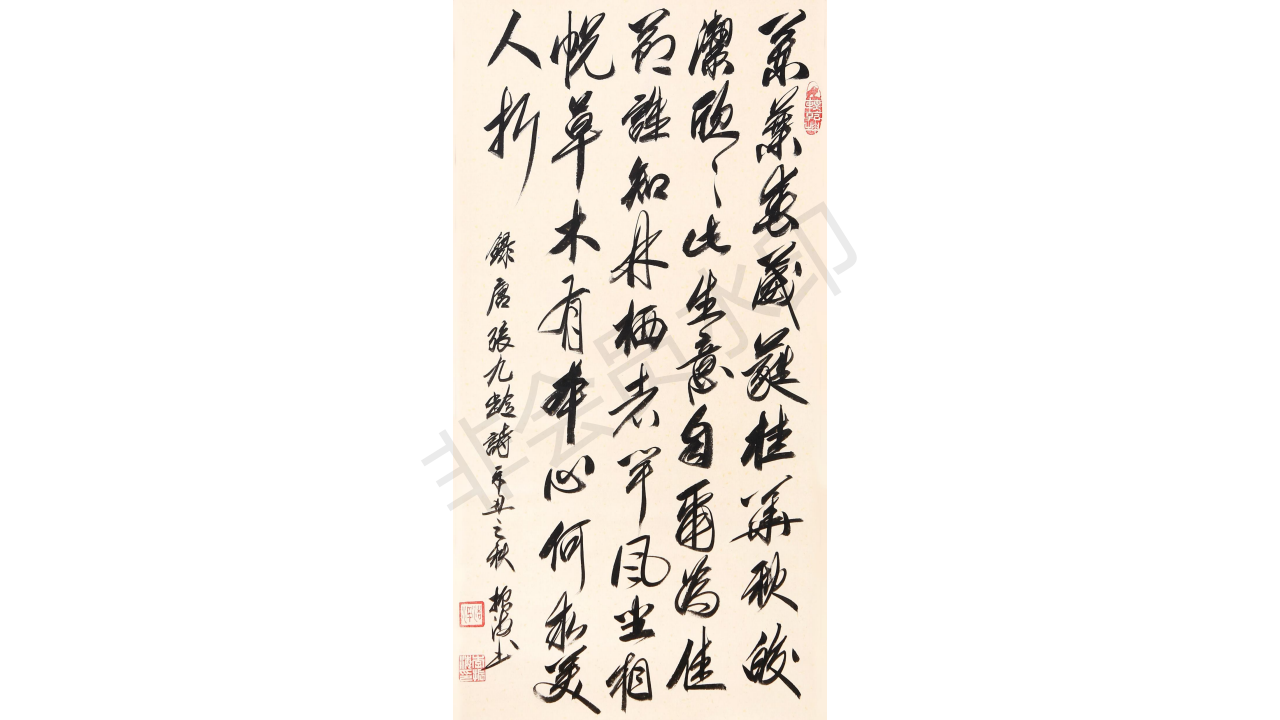 蘭葉春葳蕤桂華秋皎
潔欣〻此生意自爾為佳
節誰知林栖者聞風坐相
悦草木有本心何求美
人折
録唐張九齡詩辛丑之秋
非会员水印